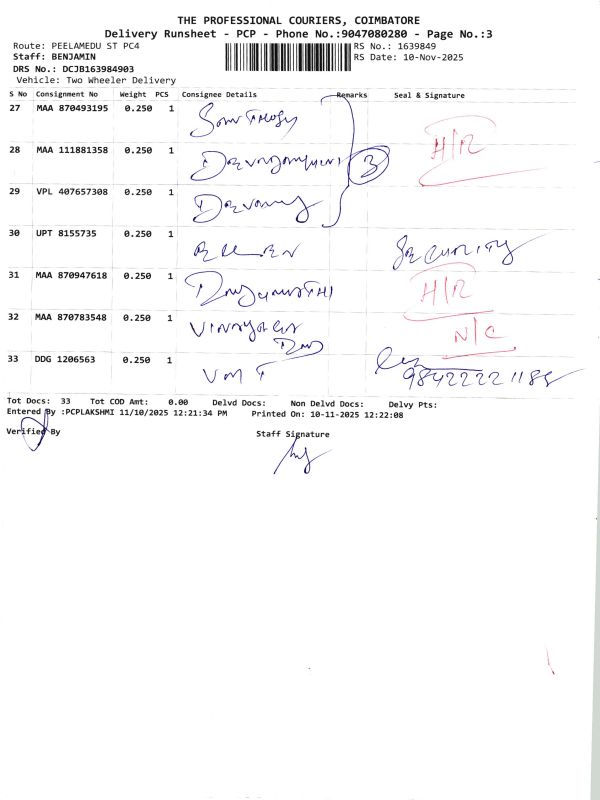 THE PROFESSIONAL COURIERS, COIMBATORE
Delivery Runsheet - PCP - Phone No.:9047080280 - Page No.:3
Route: PEELAMEDU ST PC4
RS No.: 1639849
Staff: BENJAMIN
RS Date: 10-Nov-2025
DRS No.: DCJB163984903
Vehicle: Two Wheeler Delivery
S No Consignment No Weight PCS Consignee Details Remarks Seal & Signature
27 MAA 870493195 0.250 1
H/R
28 MAA 111881358 0.250 1
3
29 VPL 407657308 0.250 1
30 UPT 8155735 0.250 1 SECURITY
31 MAA 870947618 0.250 1 H/R
32 MAA 870783548 0.250 1
N/C
33 DDG 1206563 0.250 1 VM T
Tot Docs: 33 Tot COD Amt: 0.00 Delvd Docs: Non Delvd Docs: Delvy Pts:
Entered By :PCPLAKSHMI 11/10/2025 12:21:34 PM Printed On: 10-11-2025 12:22:08
Verified By Staff Signature